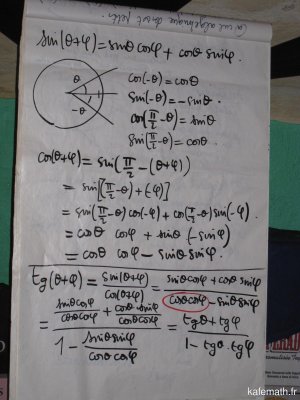 sin(θ+φ)=sinθ cosφ + cosθ sinφ.
θ
-θ
cos(-θ)=cosθ
sin(-θ)=-sinθ.
cos(π/2-θ)=sinθ
sin(π/2-θ)=cosθ.
cos(θ+φ)= sin(π/2-(θ+φ))
= sin[(π/2-θ)+(-φ)]
= sin(π/2-θ)cos(-φ)+cos(π/2-θ)sin(-φ).
= cosθ cosφ + sinθ (-sinφ)
= cosθ cosφ - sinθ sinφ.
tg(θ+φ)= sin(θ+φ)/cos(θ+φ) = (sinθ cosφ + cosθ sinφ)/(cosθ cosφ - sinθ sinφ)
= (sinθ cosφ/cosθ cosφ + cosθ sinφ/cosθ cosφ)/(1 - sinθ sinφ/cosθ cosφ) = (tgθ + tgφ)/(1 - tgθ . tgφ)
kafemath.fr